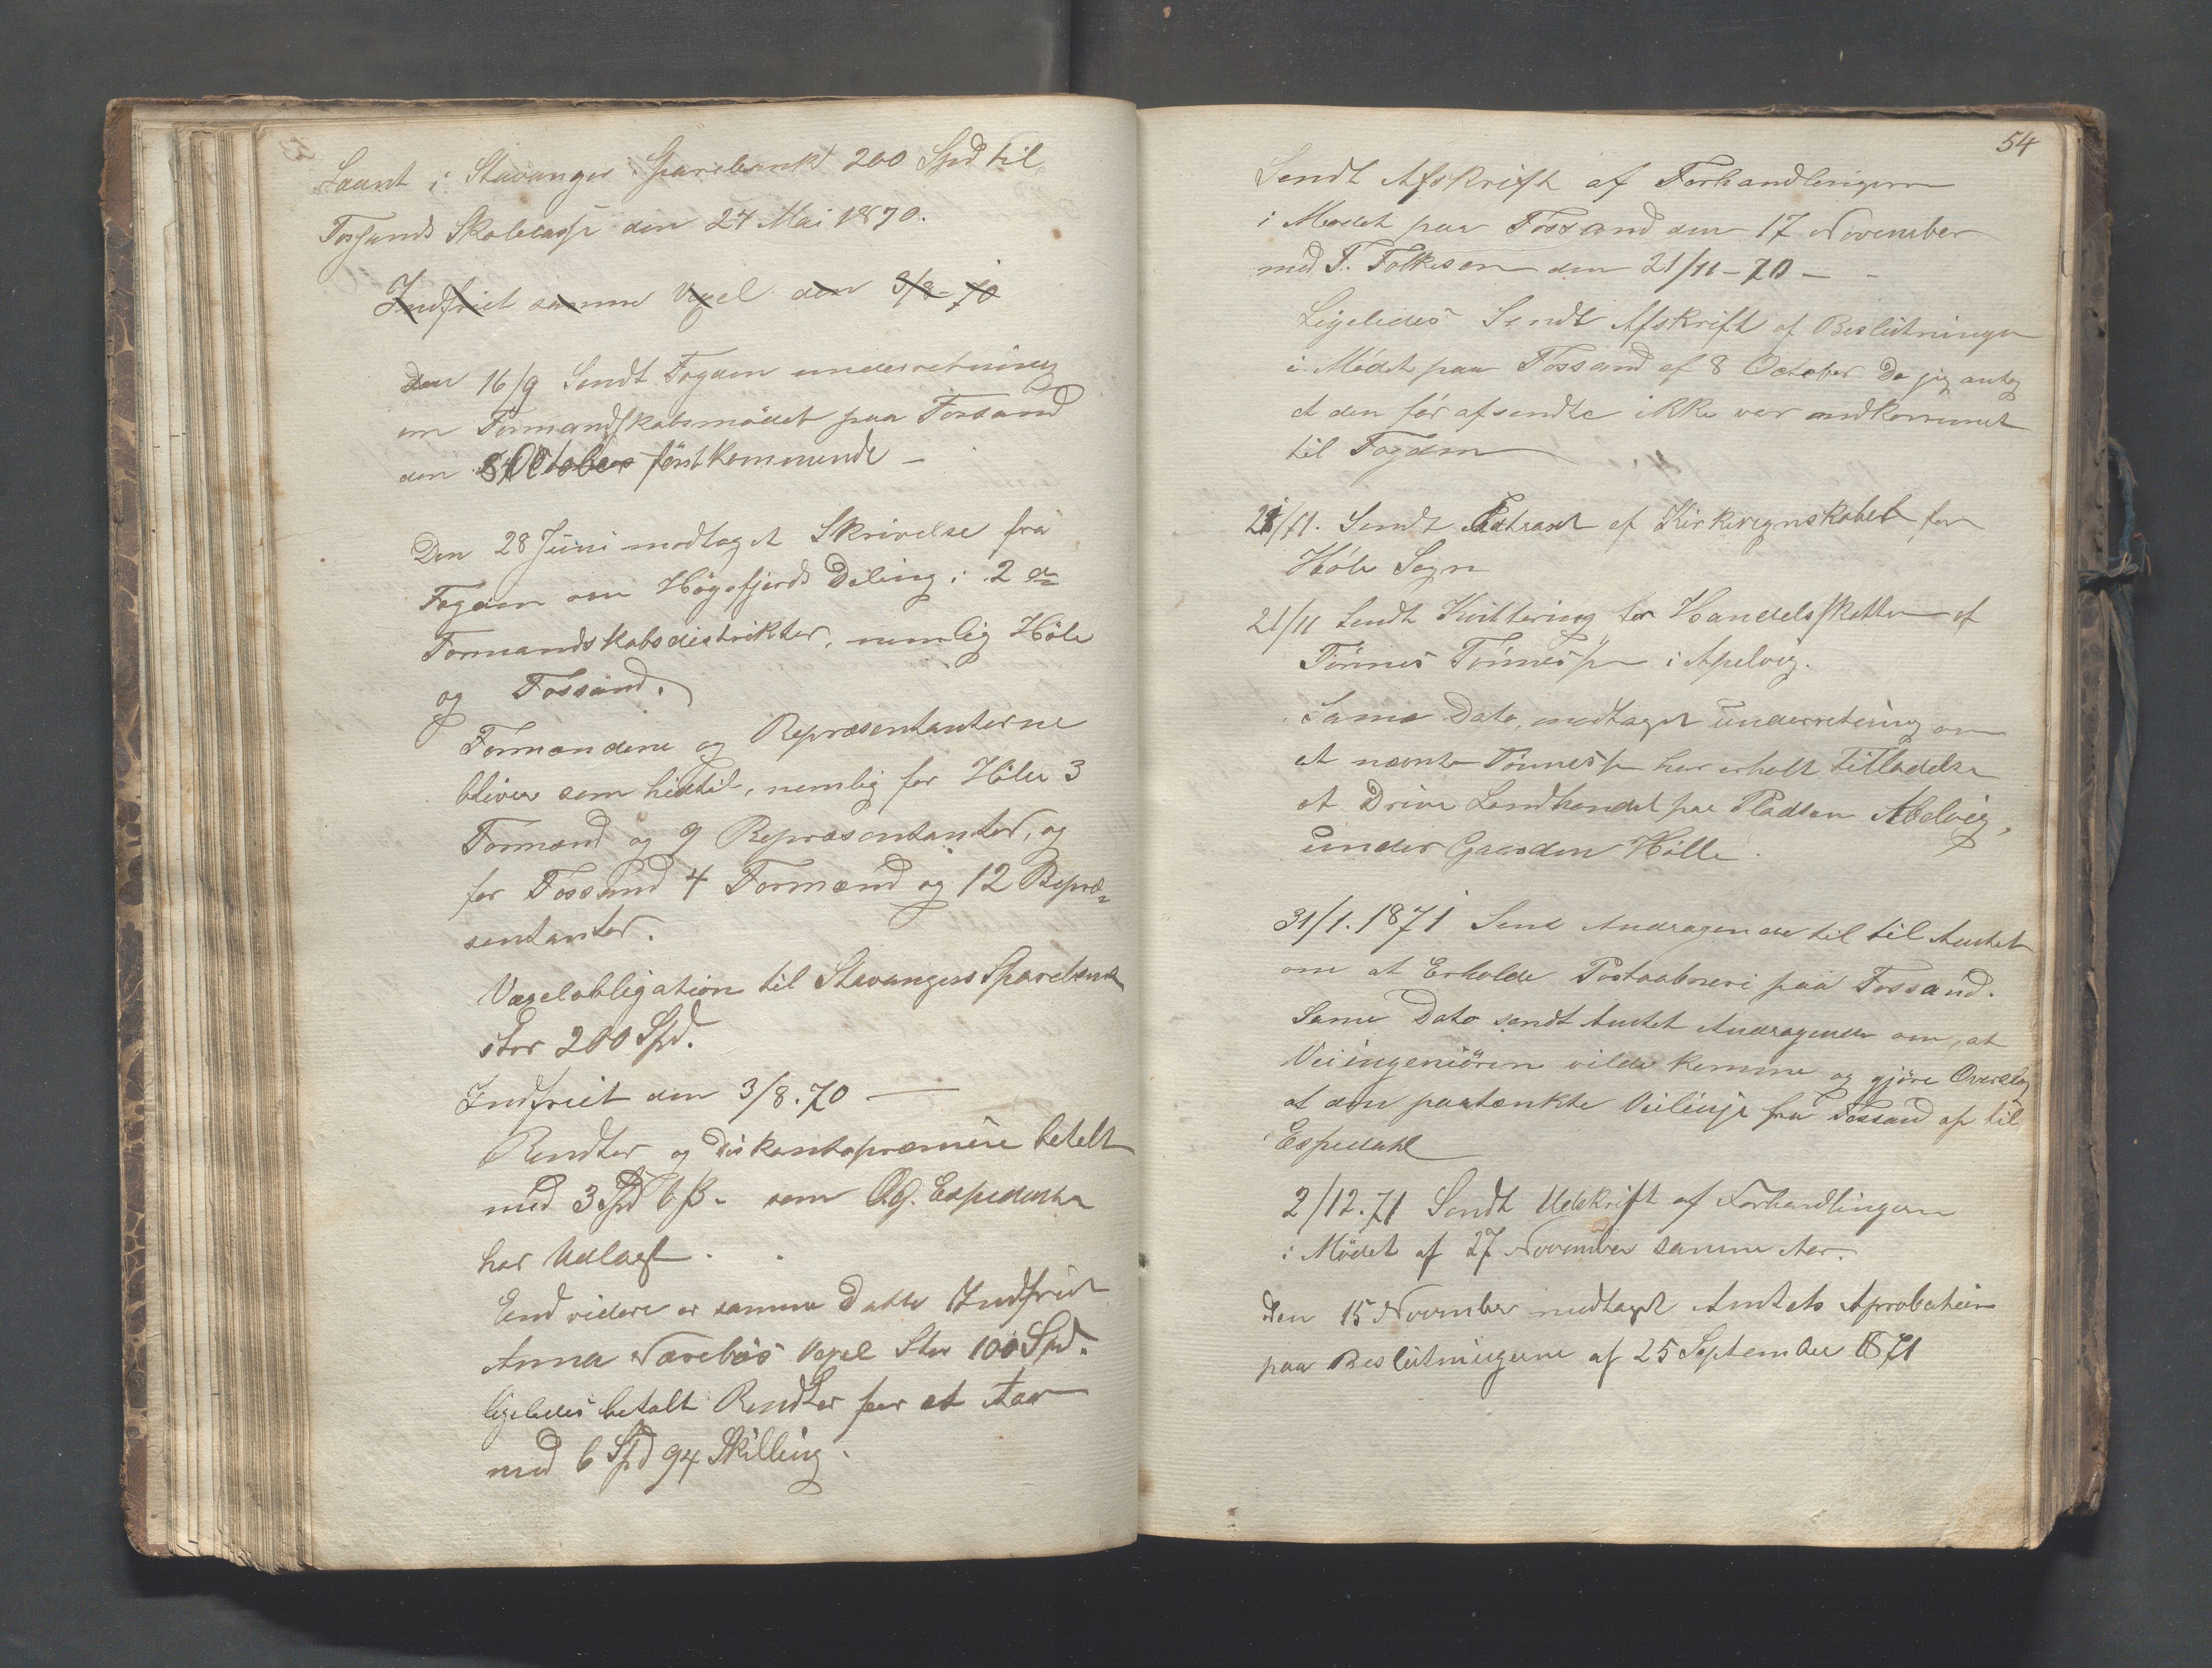 Laant i Stavanger Sparebank 200 Spd til
Fossands Skolecasse den 24 Mai 1870.
Indfriet samme Vexel den 3/8-70
Den 16/9 Sendt Fogden underretning
om Formandskabsmödet paa Fossand
den 8 October förstkommende –
Den 28 Juni modtaget Skrivelse fra
Fogden om Högsfjords Deling i 2de
Formandskabsdistrikter, nemlig Höle
og Fossand.
Formændene og Repræsentanterne
bliver som hidtil, nemlig for Höle 3
Formænd og 9 Repræsentanter, og
for Fossand 4 Formænd og 12 Repræ=
sentanter.
Vexelobligation til Stavangers Sparebank
stor 200 Spd.
Indfriet den 3/8.70 –
Rendter og Diskontopræmie betalt
med 3 Spd 6 ß. som O.G. Espedal
har Udlagt.
End videre er samme Datto Indfriet
Anna Nærebös Vexel Stor 100 Spd.
ligeledes betalt Rendter for et Aar
med 6 Spd 94 Skilling.
54
Sendt Afskrift af Forhandlingerne
i Mödet paa Fossand den 17 November
med T. Folkesen den 21/11-70 –
Ligeledes Sendt Afskrift af Beslutninger
i Mödet paa Fossand af 8 October Da jeg antog
at den för afsendte ikke var andkommet
til Fogden
21/11. Sendt Extract af Kirkeregnskabet for
Höle Sogn
21/11 Sendt Kvittering for Handelsskatten af
Tönnes Tönness i Apelvig.
Same Dato, modtaget underretning om
at nævnte Tönness har erholt Tilladelse
at Drive Landhandel paa Pladsen Abelvig,
under Gaarden Hölle.
31/1.1871 Send Andragende til til Amtet
om at Erholde Postaabneri paa Fossand.
Same Dato sendt Amtet Andragende om, at
Veiingeniören vilde komme og gjöre Overslag
at den paatænkte Veilinje fra Fossand op til
Espedahl
2/12.71 Sendt Udskrift af Forhandlingerne
i Mödet af 27 November samme Aar.
Den 15 November modtaget Amtets Aprobation
paa Beslutningerne af 25 September 1871